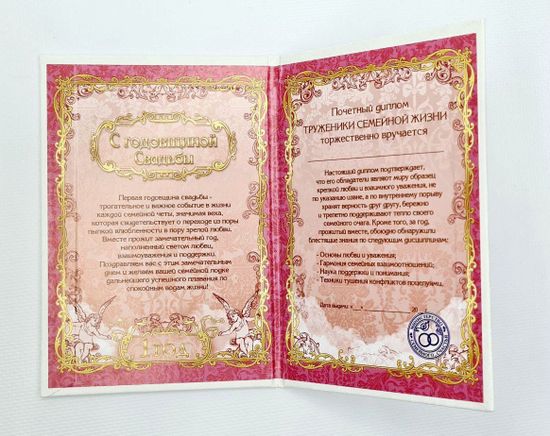 С годовщиной
Свадьбы
Первая годовщина свадьбы -
трогательное и важное событие в жизни
каждой семейной четы, значимая веха,
которая свидетельствует о переходе из поры
пылкой влюбленности в пору зрелой любви.
Вместе прожит замечательный год,
наполненный светом любви,
взаимоуважения и поддержки.
Поздравляем вас с этим замечательным
днем и желаем вашей семейной лодке
дальнейшего успешного плавания по
спокойным водам жизни!
1 год
Почетный диплом
ТРУЖЕНИКИ СЕМЕЙНОЙ ЖИЗНИ
торжественно вручается
Настоящий диплом подтверждает,
что его обладатели являют миру образец
крепкой любви и взаимного уважения, не
по указанию извне, а по внутреннему порыву
хранят верность друг другу, бережно
и трепетно поддерживают тепло своего
семейного очага. Кроме того, за год,
прожитый вместе, обоюдно обнаружили
блестящие знания по следующим дисциплинам:
- Основы любви и уважения;
- Гармония семейных взаимоотношений;
- Наука поддержки и понимания;
- Техники тушения конфликтов поцелуями.
Дата выдачи «__»__________ 20